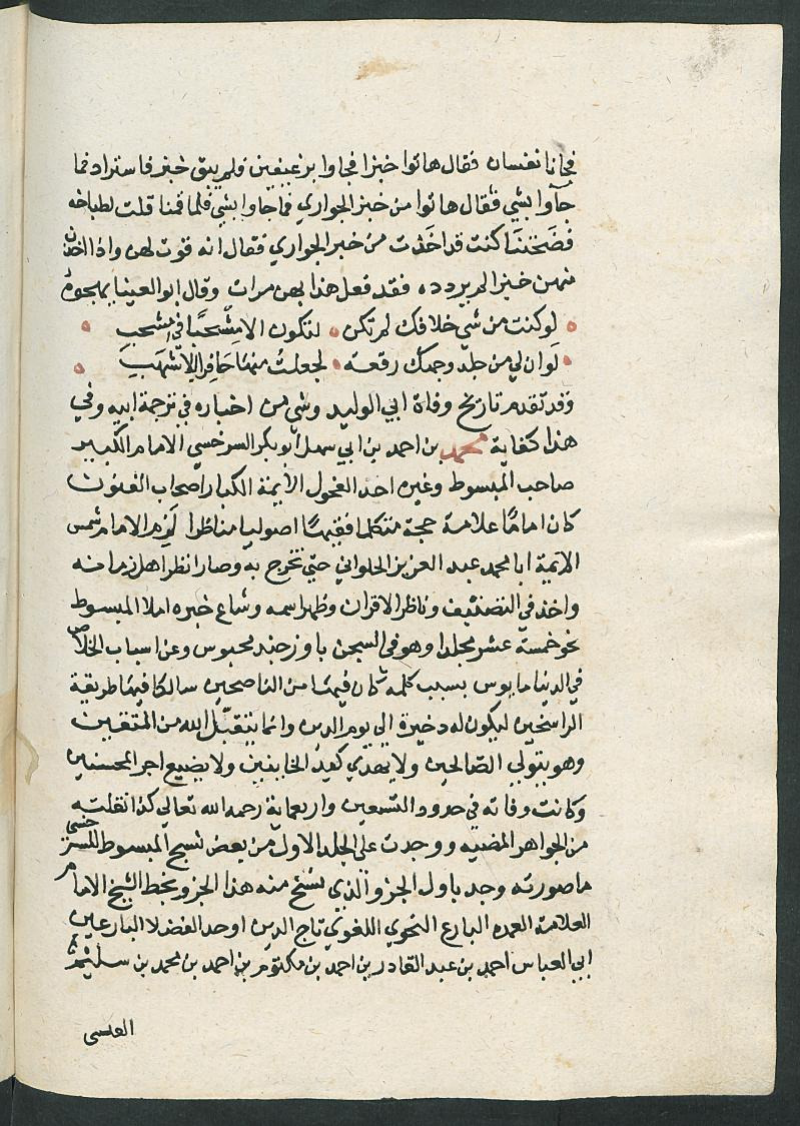 فجانا نفسان فقال هاتوا خبزا فجاوا برغيفين فلم يبق خبز فاستزاد فما
جآوا بشي فقال هاتوا من خبز الجواري فما جاوا بشي فلما قمنا قلت لطباخه
فضحتنا كنت قد اخذت من خبز الجواري فقال انه قوت لهن واذا اخذ
منهن خبزا لم يردده فقد فعل هذا بهن مرات وقال ابو العينا يهجوه
لو كنت من شي خلافك لم تكن لتكون الا مشجبا في مشجب
لو ان لي من جلد وجهك رقعة لجعلت منها حافرا للاشهب
وقد تقدم تاريخ وفاة ابي الوليد وشي من اخباره في ترجمة ابيه وفي
هذا كفاية محمد بن احمد بن ابي سهل ابو بكر السرخسي الامام الكبير
صاحب المبسوط وغيره احد الفحول الأيمة الكبار اصحاب الفنون
كان امامًا علامة حجة متكلما فقيهًا اصوليا مناظرا لزم الامام شمس
الايمة ابا محمد عبد العزيز الحلواني حتي تخرج به وصار انظر اهل زمانه
واخذ في التصنيف وناظر الاقران وظهر اسمه وشاع خبره املا المبسوط
نحو خمسة عشر مجلدا وهو في السجن باوزجند محبوس وعن اسباب الخلاص
في الدنيا مايوس بسبب كلمة كان فيها من الناصحين سالكا فيها طريقة
الراسخين ليكون له ذخيرة الي يوم الدين وانما يتقبل الله من المتقين
وهو يتولي الصالحين ولا يهدي كيد الخاينين ولا يضيع اجر المحسنين
وكانت وفاته في حدود التسعين واربعماية رحمه الله تعالي كذا نقلته
من الجواهر المضيه ووجدت علي الجلد الاول من بعض نسخ المبسوط للسرخسي
ما صورته وجد باول الجزو الذي نسخ منه هذا الجزو بخط الشيخ الامام
العلامة العمده البارع النحوي اللغوي تاج الدين اوحد الفضلا البارعين
ابي العباس احمد بن عبد القادر بن احمد بن مكتوم بن احمد بن محمد بن سليم
القيسي